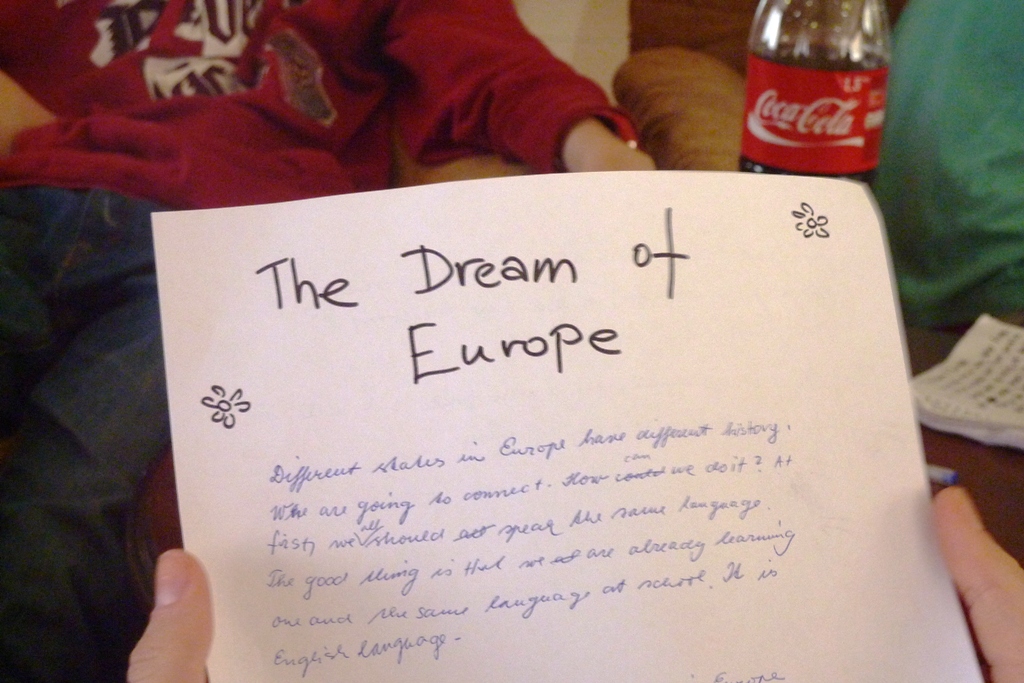 1.5
Coca-Cola
The Dream of
Europe
Different states in Europe have different history.
We are going to connect. How can we do it? At
first, we all should speak the same language.
The good thing is that we are already learning
one and the same language at school. It is
English language.
Europe